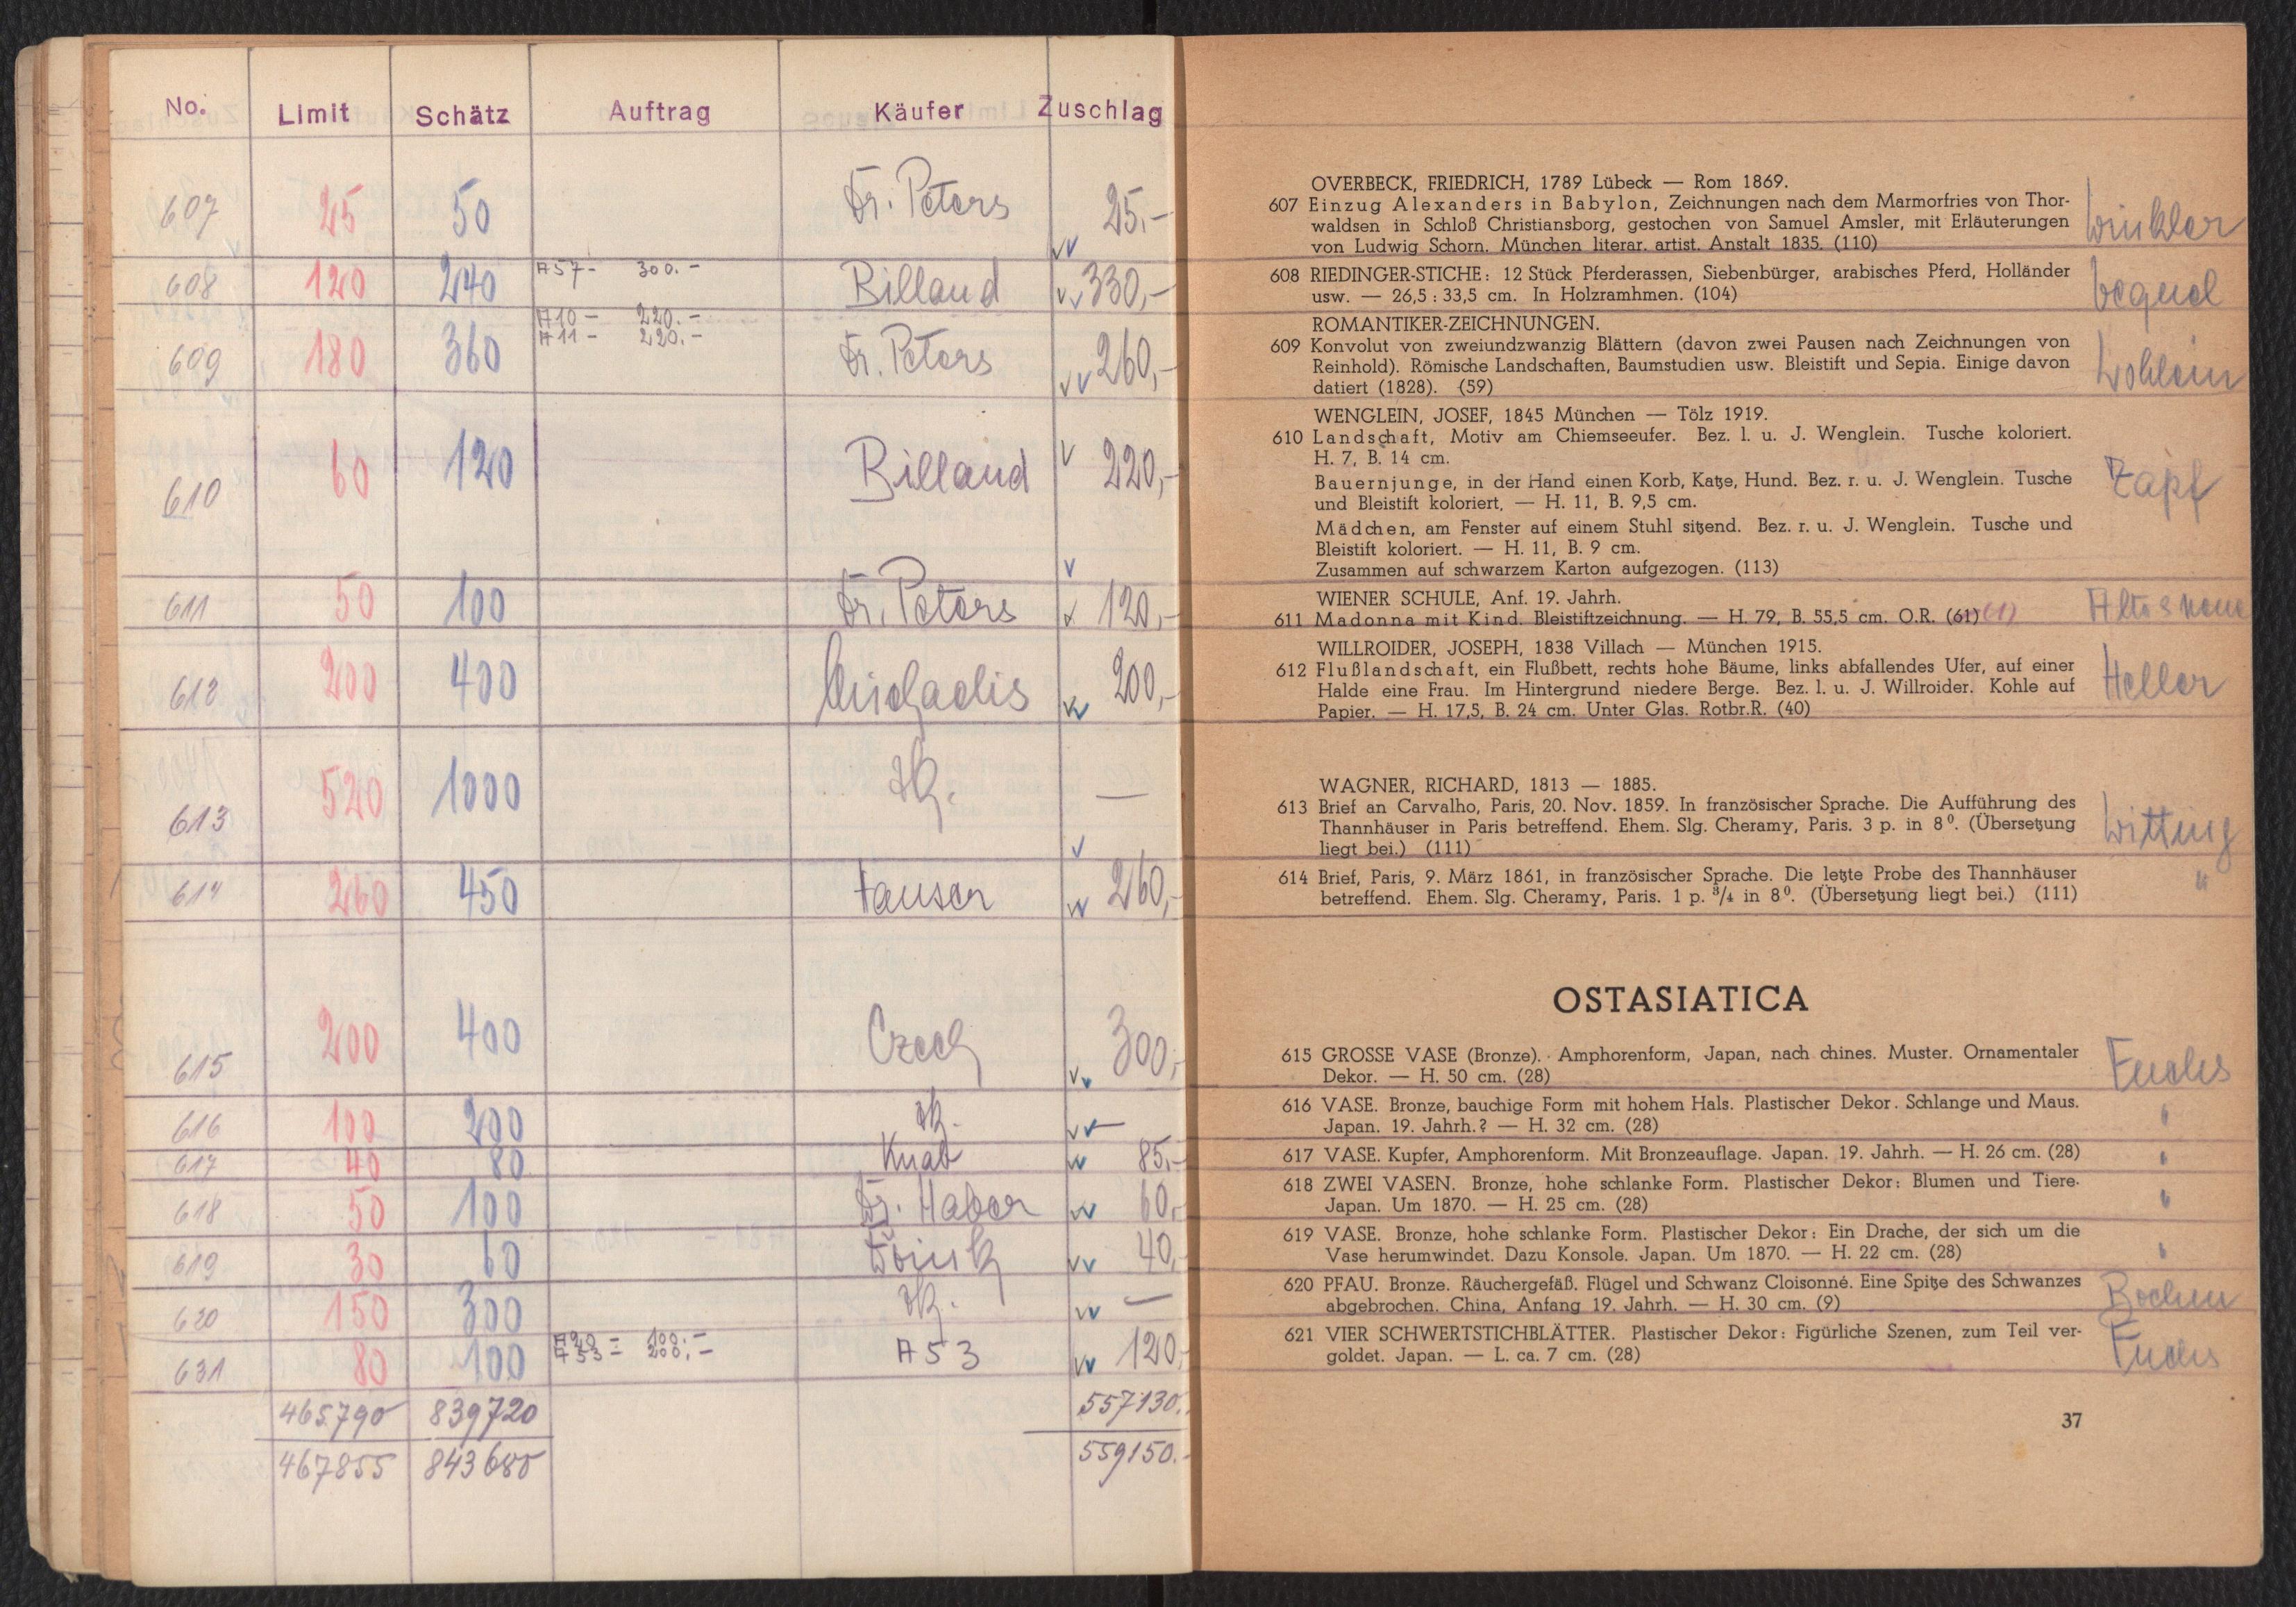 No. Limit Schätz Auftrag Käufer Zuschlag
607 25 50 Dr. Peters 25,-
608 120 240 A57- 300.- Billand 330,-
A10- 220.-
A11- 220.-
609 180 360 Dr. Peters 260,-
610 60 120 Billand 220,-
611 50 100 Dr. Peters 120,-
612 200 400 200,-
613 520 1000 —
614 260 450 Hauser 260,-
615 200 400 Czech 300,-
616 100 200 —
617 40 80 Knab 85,-
618 50 100 Dr. Haber 60,-
619 30 60 40,-
620 150 300 —
A20 - 100.-
631 80 100 A53 - 200.- A53 120,-
465790 839720 557130.
467855 843680 559150.-
OVERBECK, FRIEDRICH, 1789 Lübeck — Rom 1869.
607 Einzug Alexanders in Babylon, Zeichnungen nach dem Marmorfries von Thor-
waldsen in Schloß Christiansborg, gestochen von Samuel Amsler, mit Erläuterungen
von Ludwig Schorn. München literar. artist. Anstalt 1835. (110)
Winkler
608 RIEDINGER-STICHE: 12 Stück Pferderassen, Siebenbürger, arabisches Pferd, Holländer
usw. — 26,5 : 33,5 cm. In Holzramhmen. (104)
ROMANTIKER-ZEICHNUNGEN.
609 Konvolut von zweiundzwanzig Blättern (davon zwei Pausen nach Zeichnungen von
Reinhold). Römische Landschaften, Baumstudien usw. Bleistift und Sepia. Einige davon
datiert (1828). (59)
Wohlein
WENGLEIN, JOSEF, 1845 München — Tölz 1919.
610 Landschaft, Motiv am Chiemseeufer. Bez. l. u. J. Wenglein. Tusche koloriert.
H. 7, B. 14 cm.
Bauernjunge, in der Hand einen Korb, Katze, Hund. Bez. r. u. J. Wenglein. Tusche
und Bleistift koloriert, — H. 11, B. 9,5 cm.
Zapf
Mädchen, am Fenster auf einem Stuhl sitzend. Bez. r. u. J. Wenglein. Tusche und
Bleistift koloriert. — H. 11, B. 9 cm.
Zusammen auf schwarzem Karton aufgezogen. (113)
WIENER SCHULE, Anf. 19. Jahrh.
611 Madonna mit Kind. Bleistiftzeichnung. — H. 79, B. 55,5 cm. O.R. (61)
WILLROIDER, JOSEPH, 1838 Villach — München 1915.
612 Flußlandschaft, ein Flußbett, rechts hohe Bäume, links abfallendes Ufer, auf einer
Halde eine Frau. Im Hintergrund niedere Berge. Bez. l. u. J. Willroider. Kohle auf
Papier. — H. 17,5, B. 24 cm. Unter Glas. Rotbr.R. (40)
Heller
WAGNER, RICHARD, 1813 — 1885.
613 Brief an Carvalho, Paris, 20. Nov. 1859. In französischer Sprache. Die Aufführung des
Thannhäuser in Paris betreffend. Ehem. Slg. Cheramy, Paris. 3 p. in 8⁰. (Übersetzung
liegt bei.) (111)
Witting
614 Brief, Paris, 9. März 1861, in französischer Sprache. Die letzte Probe des Thannhäuser
betreffend. Ehem. Slg. Cheramy, Paris. 1 p. ³/₄ in 8⁰. (Übersetzung liegt bei.) (111)
"
OSTASIATICA
615 GROSSE VASE (Bronze). Amphorenform, Japan, nach chines. Muster. Ornamentaler
Dekor. — H. 50 cm. (28)
Fuchs
616 VASE. Bronze, bauchige Form mit hohem Hals. Plastischer Dekor. Schlange und Maus.
Japan. 19. Jahrh.? — H. 32 cm. (28)
617 VASE. Kupfer, Amphorenform. Mit Bronzeauflage. Japan. 19. Jahrh. — H. 26 cm. (28)
618 ZWEI VASEN. Bronze, hohe schlanke Form. Plastischer Dekor: Blumen und Tiere.
Japan. Um 1870. — H. 25 cm. (28)
619 VASE. Bronze, hohe schlanke Form. Plastischer Dekor: Ein Drache, der sich um die
Vase herumwindet. Dazu Konsole. Japan. Um 1870. — H. 22 cm. (28)
620 PFAU. Bronze. Räuchergefäß. Flügel und Schwanz Cloisonné. Eine Spitze des Schwanzes
abgebrochen. China, Anfang 19. Jahrh. — H. 30 cm. (9)
621 VIER SCHWERTSTICHBLÄTTER. Plastischer Dekor: Figürliche Szenen, zum Teil ver-
goldet. Japan. — L. ca. 7 cm. (28)
Fuchs
37